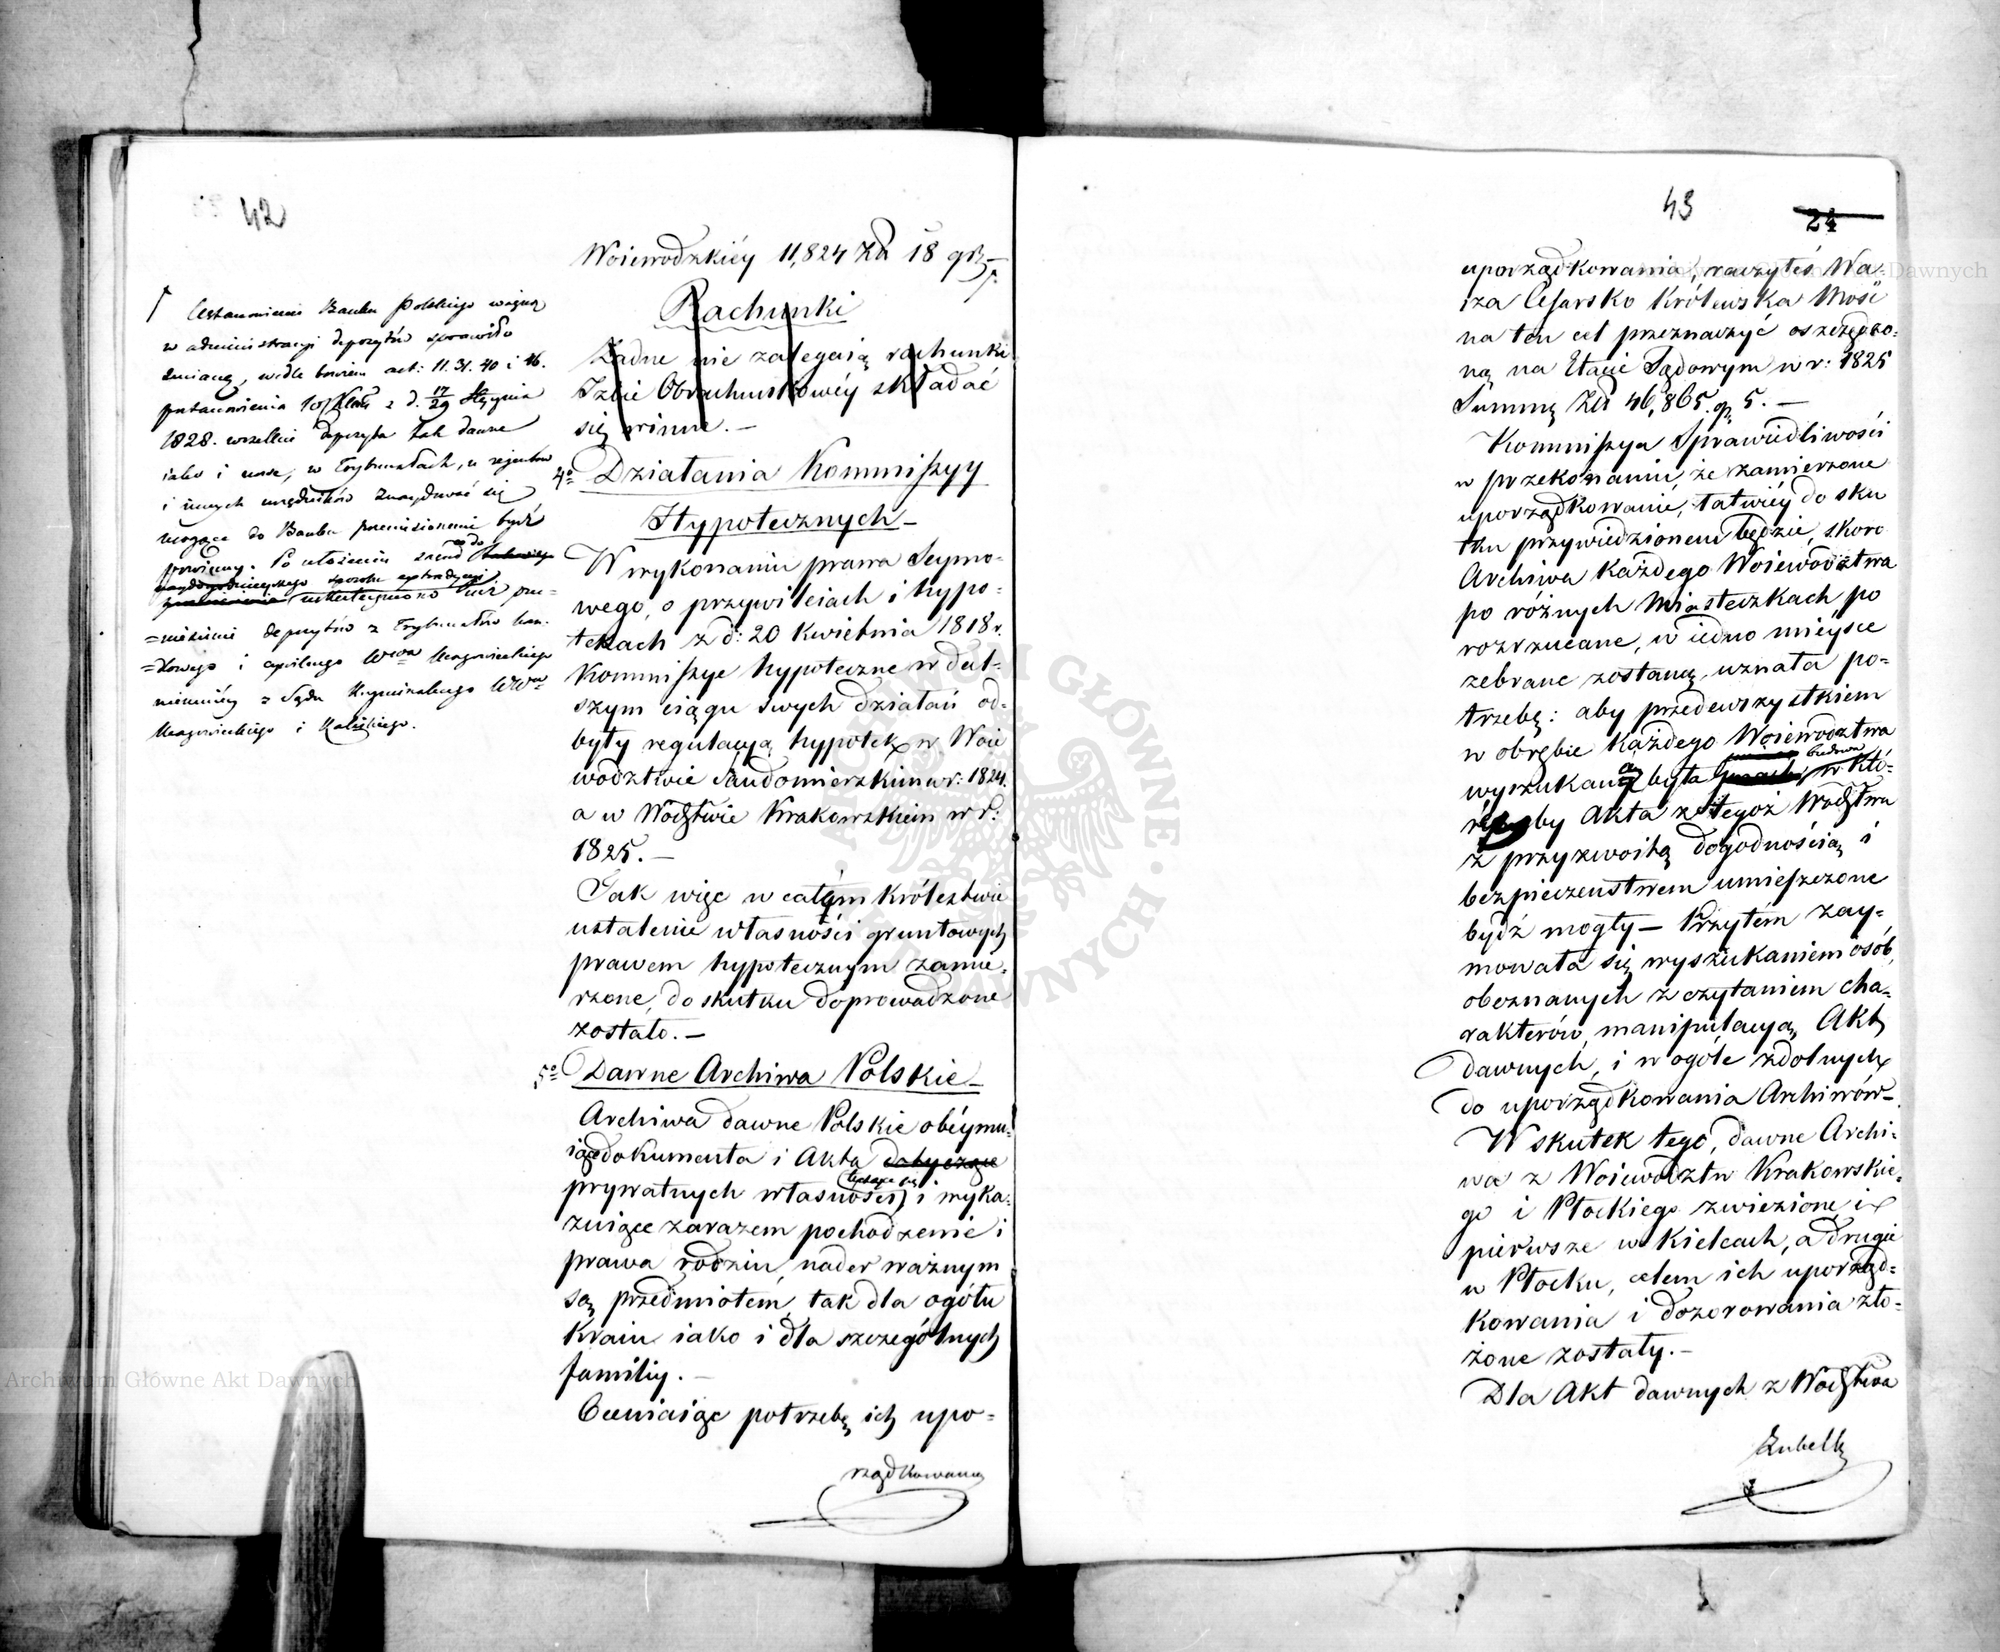 42
Woiewodzkiéy 11,824 Zł 18 gr.
Rachunki
Żadne nie zalegaią rachunki
Izbie Obrachunkowéy składać
się winne. —
4º Działania Kommißyy
Hypotecznych —
W wykonaniu prawa Seymo-
wego, o przywileiach i hypo-
tekach z d: 20 Kwietnia 1818 r.
Kommißye hypoteczne w dal-
szym ciągu swych działań od-
były regulacyą hypotek w Woie
wództwie Sandomierzkim w r: 1824.
a w Wodztwie Krakowskiem w r:
1825. —
Tak więc w całym Królestwie
ustalenie własności gruntowych
prawem hypotecznym zamie-
rzone, do skutku doprowadzone
zostało. —
5º Dawne Archiwa Polskie —
Archiwa dawne Polskie obéymu-
iące dokumenta i Akta dotyczące
tyczące się
prywatnych własności, i wyka-
zuiące zarazem pochodzenie i
prawa rodzin, nader ważnym
są przedmiotem, tak dla ogółu
Kraiu iako i dla szczególnych
familiy. —
Oceniaiąc potrzebę ich upo-
rządkowania
Ustanowienie Banku Polskiego ważną
w administracyi depozytów sprawiło
zmianę, wedle bowiem art: 11. 31. 40 i 46.
postanowienia z d. 17/29 Stycznia
1828. wszelkie depozyta tak dawne
iako i nowe, w Trybunałach, u rejentów
i innych urzędników znaydować się
mogące do Banku przeniesionemi bydź
powinny. Po ułożeniu zasad co do
sposobu
uskuteczniono iuż prze-
=niesienie depozytów z Trybunałów han-
=dlowego i cywilnego Wwa Mazowieckiego
niemniéy z Sądu Kryminalnego WWa
Mazowieckiego i Kaliskiego.
43
24
uporządkowania, raczyłeś Wa-
sza Cesarsko Królewska Mość
na ten cel przeznaczyć oszczędzo-
ną na Etacie Sądowym w r: 1825
Summę Zł 46,865. gr. 5. —
Kommißya Sprawiedliwości
w przekonaniu, że zamierzone
uporządkowanie, łatwiéy do sku
tku przywiedzionem będzie, skoro
Archiwa każdego Woiewództwa
po różnych Miasteczkach, po
rozrzucane, w iedno mieysce
zebrane zostaną, uznała po-
trzebę: aby przedewszystkiem
w obrębie każdego Woiewództwa
budowa
wyszukaną była w któ-
réyby Akta z tegoż Wodztwa
z przyzwoitą dogodnością i
bezpieczeństwem umieszczone
bydź mogły — Przytém zay-
mowała się wyszukaniem osób,
obeznanych z czytaniem cha-
rakterów, manipulacyą Akt
dawnych, i w ogóle zdolnych
do uporządkowania Archiwów —
W skutek tego, dawne Archi-
wa z Woiewództw Krakowskie-
go i Płockiego zwiezione, i
pierwsze w Kielcach, a drugie
w Płocku, celem ich uporząd-
kowania i dozorowania zło-
żone zostały. —
Dla Akt dawnych z Wodztwa
Lubelsk
Archiwum Główne Akt Dawnych